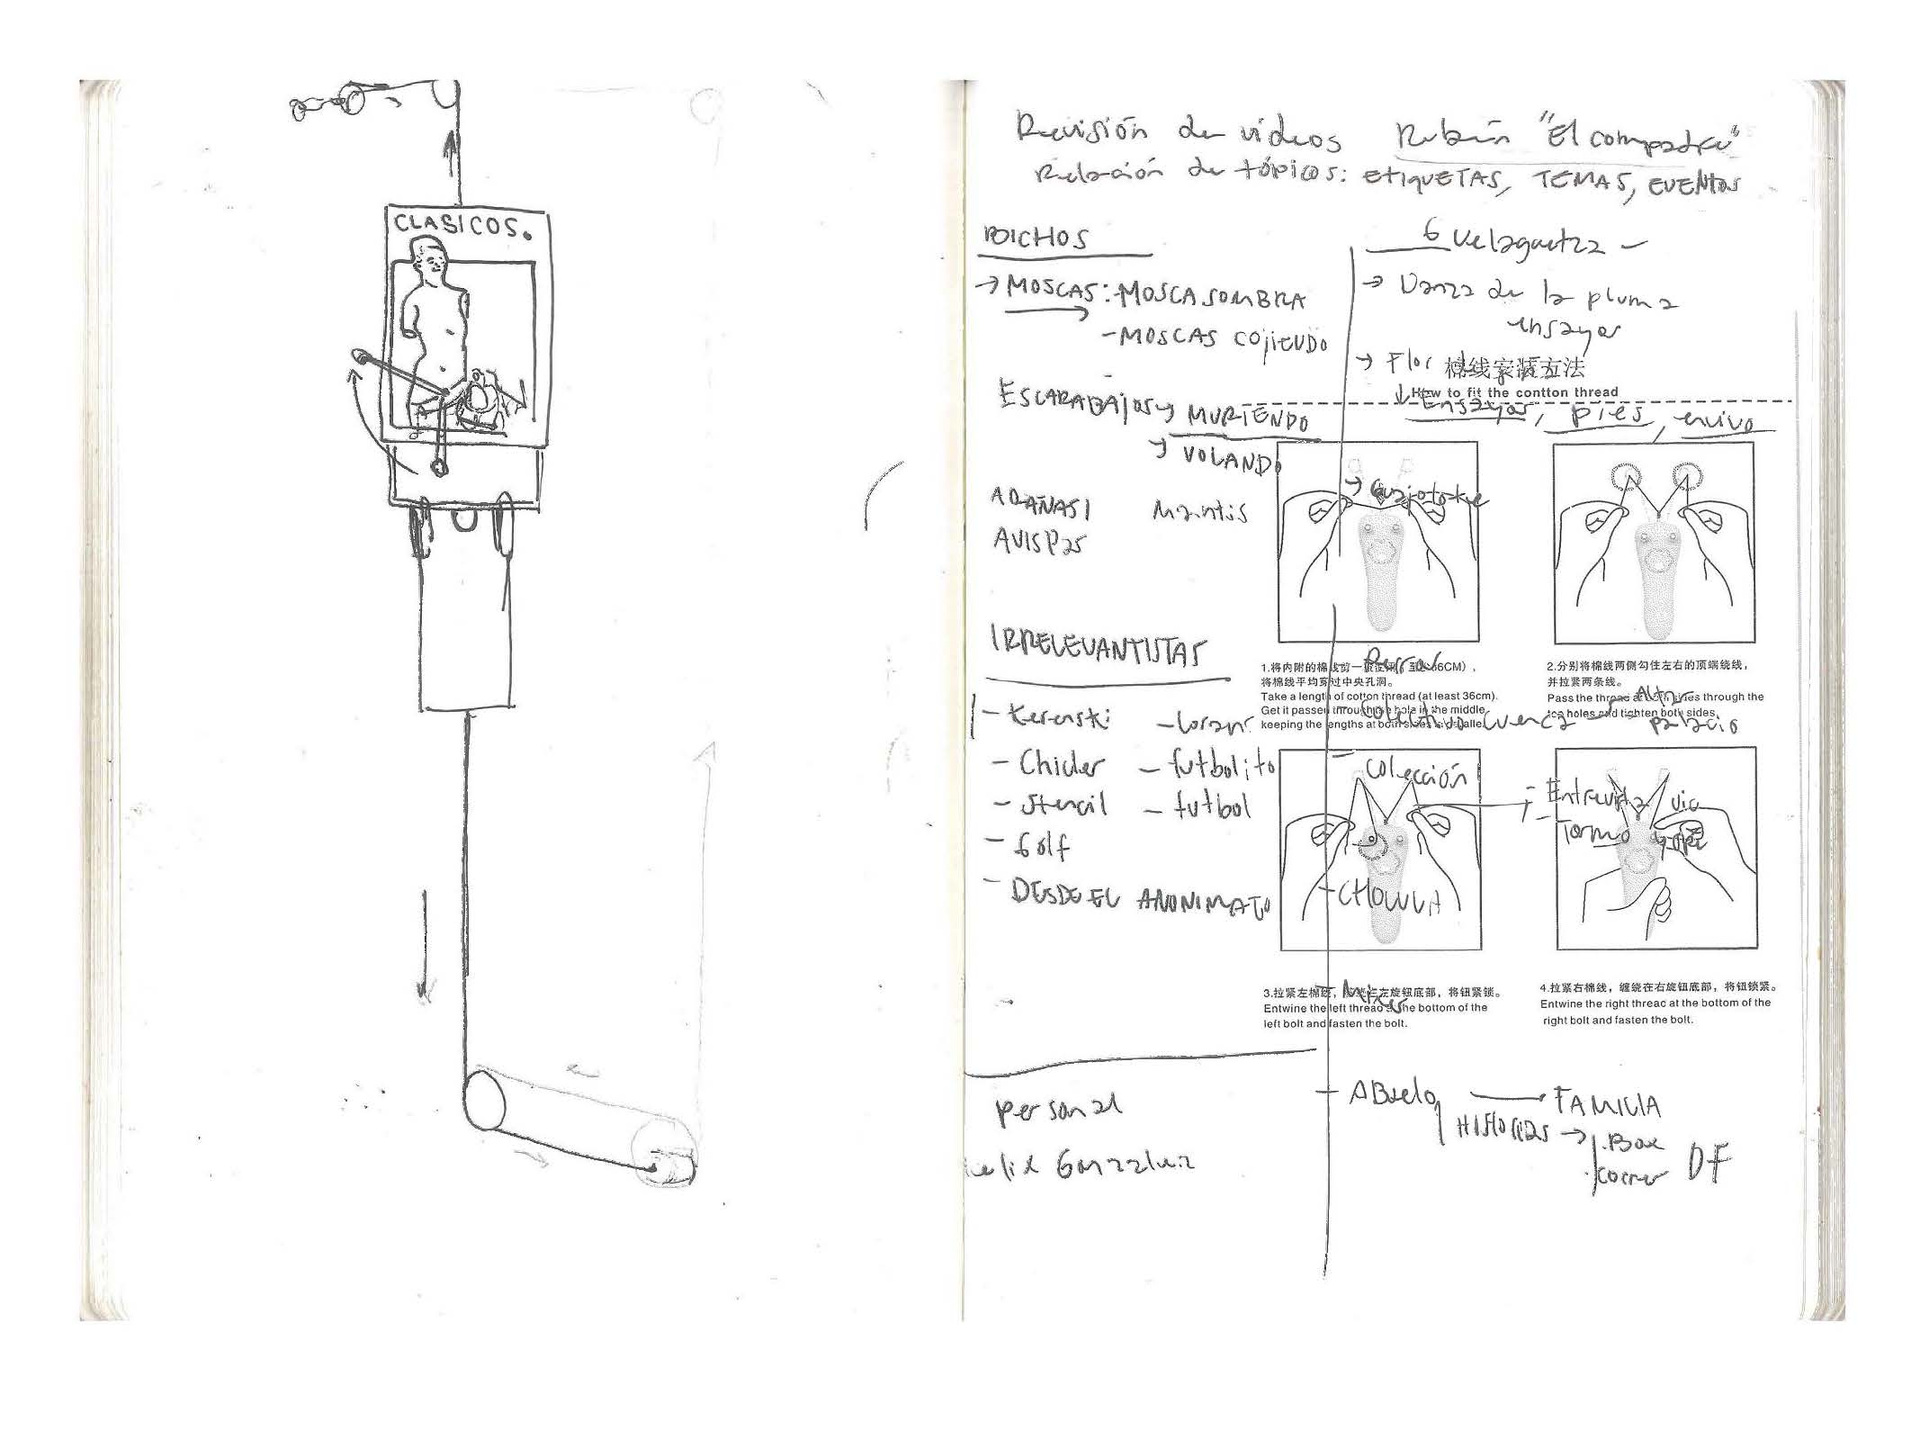 CLASICOS.
Revisión de videos Rubén "El compadre"
Relación de tópicos: ETIQUETAS, TEMAS, EVENTOS
BICHOS
→ MOSCAS: - MOSCA SOMBRA
- MOSCAS COJIENDO
ESCARABAJOS → MURIENDO
→ VOLANDO
ARAÑAS Mantis
AVISPAS
IRRELEVANTISTAS
- Kerenski
- Chicler - futbolito
- Stencil - futbol
- Golf
- DESDE EL ANONIMATO
personal
Gonzalez
Guelaguetza -
→ Danza de la pluma
ensayos
→ Flor
棉线安装方法
How to fit the contton thread
↓ Ensayos, pies, envivo
→ Guajolote
Perros
1.将内附的棉线剪一段(至少36CM),
将棉线平均穿过中央孔洞。
Take a length of cotton thread (at least 36cm).
Get it passed through the hole in the middle,
keeping the lengths at both sides
2.分别将棉线两侧勾住左右的顶端绕线,
并拉紧两条线。
Pass the thread at both sides through the
top holes and tighten both sides.
- Colectivo Cuenca - Alta
palacio
- Colección
- Entrevista
- Torno
- CHOLULA
3.拉紧左棉线,左旋钮底部,将钮锁紧。
Entwine the left thread at the bottom of the
left bolt and fasten the bolt.
4.拉紧右棉线,缠绕在右旋钮底部,将钮锁紧。
Entwine the right threac at the bottom of the
right bolt and fasten the bolt.
- Mixes
- ABuelo — FAMILIA
HISTORIAS → . Box
. Correr DF